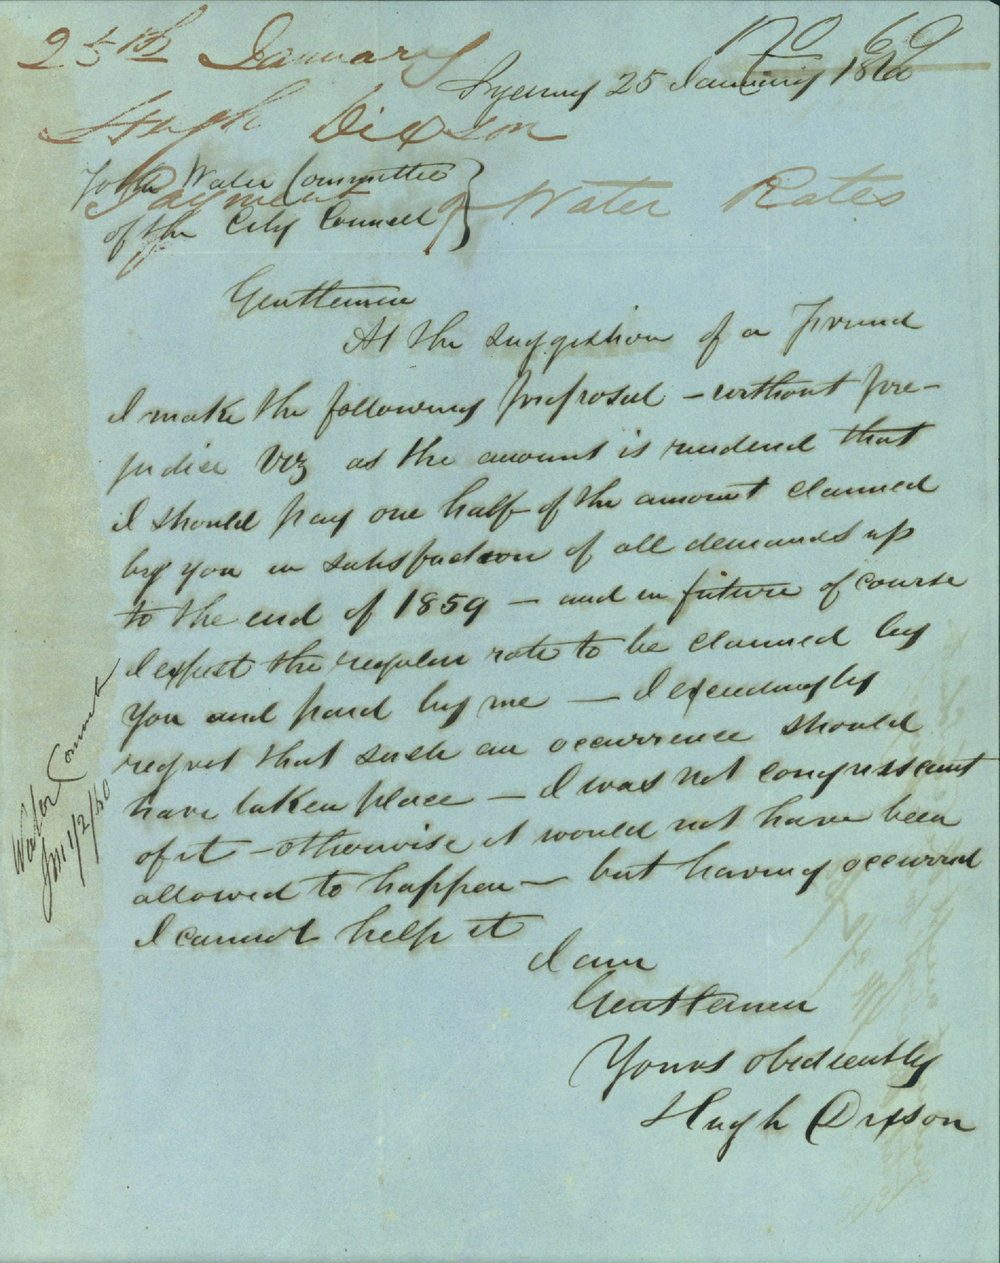 25th January
No 69
Sydney 25 January 1860
Hugh Dixson
Payment of Water Rates
To the Water Committee
of the City Council
Gentlemen
At the suggestion of a Friend
I make the following proposal – without pre-
judice viz as the amount is rendered that
I should pay one half of the amount claimed
by you in satisfaction of all demands up
to the end of 1859 – and in future of course
I expect the regular rate to be claimed by
you and paid by me – I exceedingly
regret that such an occurrence should
have taken place – I was not congnissant
of it – otherwise it would not have been
allowed to happen – but having occurred
I cannot help it
I am
Gentlemen
Yours obediently
Hugh Dixson
Water Commt
1/2/60